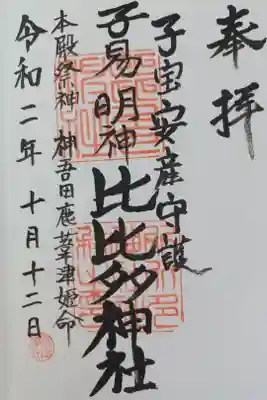 奉拝
子宝安産守護
子易明神
比比多神社
本殿祭神 神吾田鹿葦津姫命
令和二年十月十二日